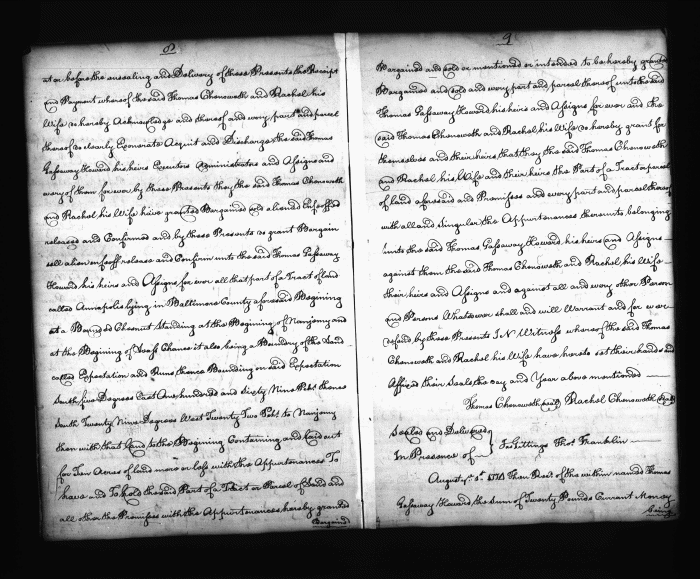 8
at or before the ensealing and Delivery of these Presents the Receipt
and Payment whereof the said Thomas Chenoweth and Rachel his
Wife do hereby Acknowledge and thereof and every part and parcel
thereof do clearly Exonerate Acquit and Discharge the said Thomas
Gassaway Howard his heirs Executors Administrators and Assigns and
every of them for ever by these Presents they the said Thomas Chenoweth
and Rachel his Wife have granted Bargained and aliened Enfeoffed
released and Confirmed and by these Presents do grant Bargain
sell alien enfeoff release and Confirm unto the said Thomas Gassaway
Howard his heirs and Assigns for ever all that part of a Tract of land
called Annapolis lying in Baltimore County aforesaid Begining
at a Bounded Chesnut standing at the Begining of Nanjemy and
at the Begining of Chance it also being a Boundery of the Land
called Expectation and Runs thence Bounding on said Expectation
South five Degrees East One hundred and Sixty Nine Pchs thence
South Twenty Nine Degrees West Twenty Two Pchs to Nanjemy
then with that Land to the Begining Containing and laid out
for Ten Acres of land more or less with the Appurtenances To
have and To hold the said Part of a Tract or Parcel of Land and
all other the Premisses with the Appurtenances hereby granted
Bargained
9
Bargained and sold or mentioned or intended to be hereby granted
Bargained and sold and every part and parcel thereof unto the said
Thomas Gassaway Howard his heirs and Assigns for ever and the
said Thomas Chenoweth and Rachel his Wife do hereby grant for
themselves and their heirs that they the said Thomas Chenoweth
and Rachel his Wife and their heirs the Part of a Tract or parcel
of land aforesaid and Premises and every part and parcel thereof
with all and Singular the Appurtenances thereunto belonging
unto the said Thomas Gassaway Howard his heirs and Assigns
against them the said Thomas Chenoweth and Rachel his Wife
their heirs and Assigns and against all and every other Person
and Persons Whatsoever shall and will Warrant and for ever
defend by these Presents IN Witness whereof the said Thomas
Chenoweth and Rachel his Wife have hereto set their hands and
Affixed their Seals the day and Year above mentioned
Thomas Chenoweth (seal) Rachel Chenoweth (seal)
Sealed and Delivered
In Presence of Jas Gittings Thos Franklin
August 1774 Then Recd of the within named Thomas
Gassaway Howard the Sum of Twenty Pounds Currant Money
being